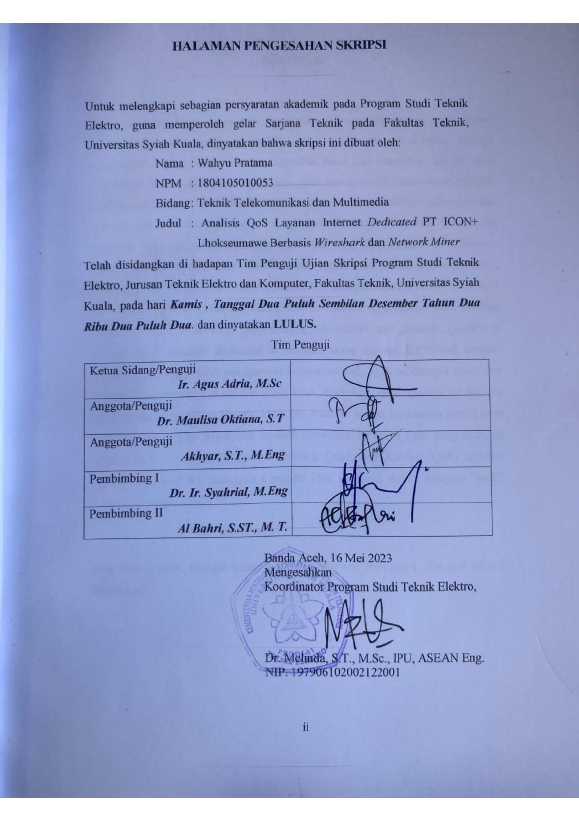 HALAMAN PENGESAHAN SKRIPSI
Untuk melengkapi sebagian persyaratan akademik pada Program Studi Teknik
Elektro, guna memperoleh gelar Sarjana Teknik pada Fakultas Teknik,
Universitas Syiah Kuala, dinyatakan bahwa skripsi ini dibuat oleh:
Nama : Wahyu Pratama
NPM : 1804105010053
Bidang : Teknik Telekomunikasi dan Multimedia
Judul : Analisis QoS Layanan Internet Dedicated PT ICON+
Lhokseumawe Berbasis Wireshark dan Network Miner
Telah disidangkan di hadapan Tim Penguji Ujian Skripsi Program Studi Teknik
Elektro, Jurusan Teknik Elektro dan Komputer, Fakultas Teknik, Universitas Syiah
Kuala, pada hari Kamis , Tanggal Dua Puluh Sembilan Desember Tahun Dua
Ribu Dua Puluh Dua. dan dinyatakan LULUS.
Tim Penguji
Ketua Sidang/Penguji
Ir. Agus Adria, M.Sc
Anggota/Penguji
Dr. Maulisa Oktiana, S.T
Anggota/Penguji
Akhyar, S.T., M.Eng
Pembimbing I
Dr. Ir. Syahrial, M.Eng
Pembimbing II
Al Bahri, S.ST., M. T.
Banda Aceh, 16 Mei 2023
Mengesahkan
Koordinator Program Studi Teknik Elektro,
Dr. Melinda, S.T., M.Sc., IPU, ASEAN Eng.
NIP. 197906102002122001
ii